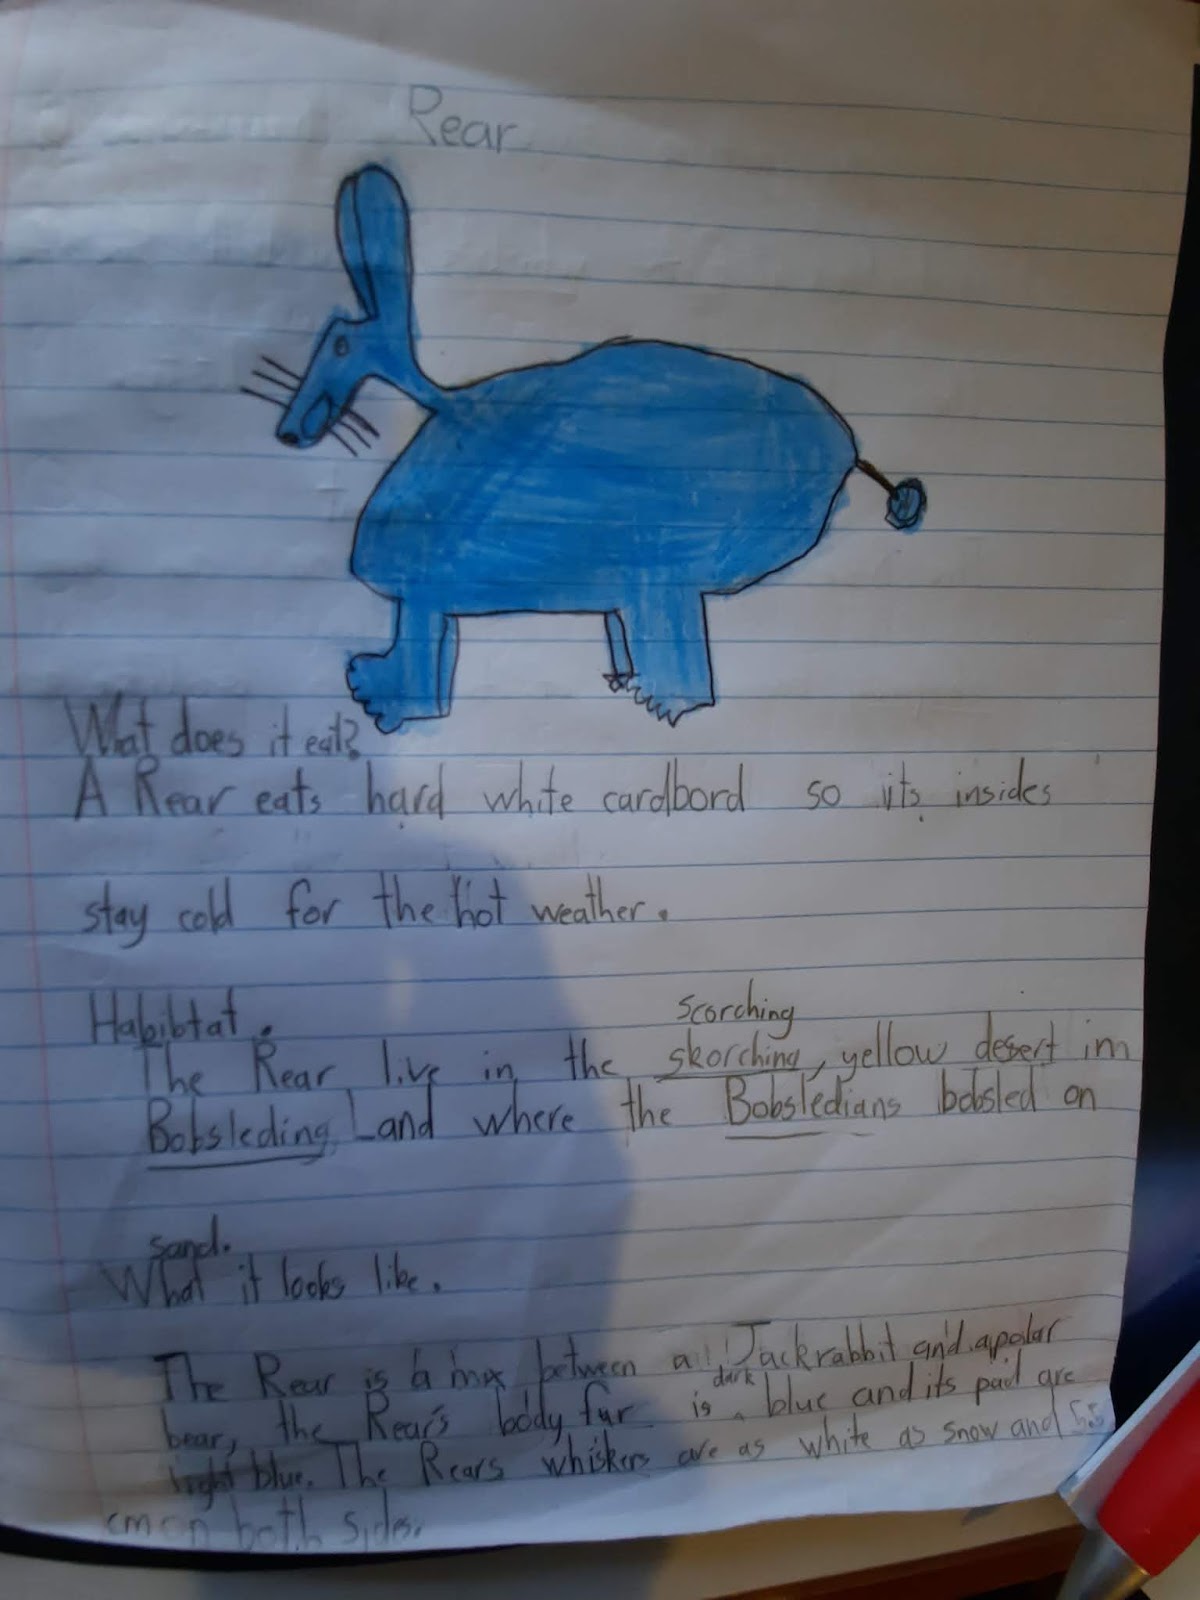 Rear
What does it eat?
A Rear eats hard white cardbord so its insides
stay cold for the hot weather.
Habibtat.
scorching
The Rear live in the skorching, yellow desert im
Bobsleding Land where the Bobsledians bobsled on
sand.
What it looks like.
The Rear is a mix between a Jackrabbit and a polar
dark
bear, the Rear's body fur is blue and its are
light blue. The Rears whiskers are as white as snow and 5.5
cm on both sides.